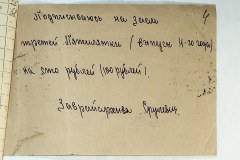 4
Подписываюсь на заем
третей Пятилетки (выпуск 4-го года)
на сто рублей (100 рублей).
Завр